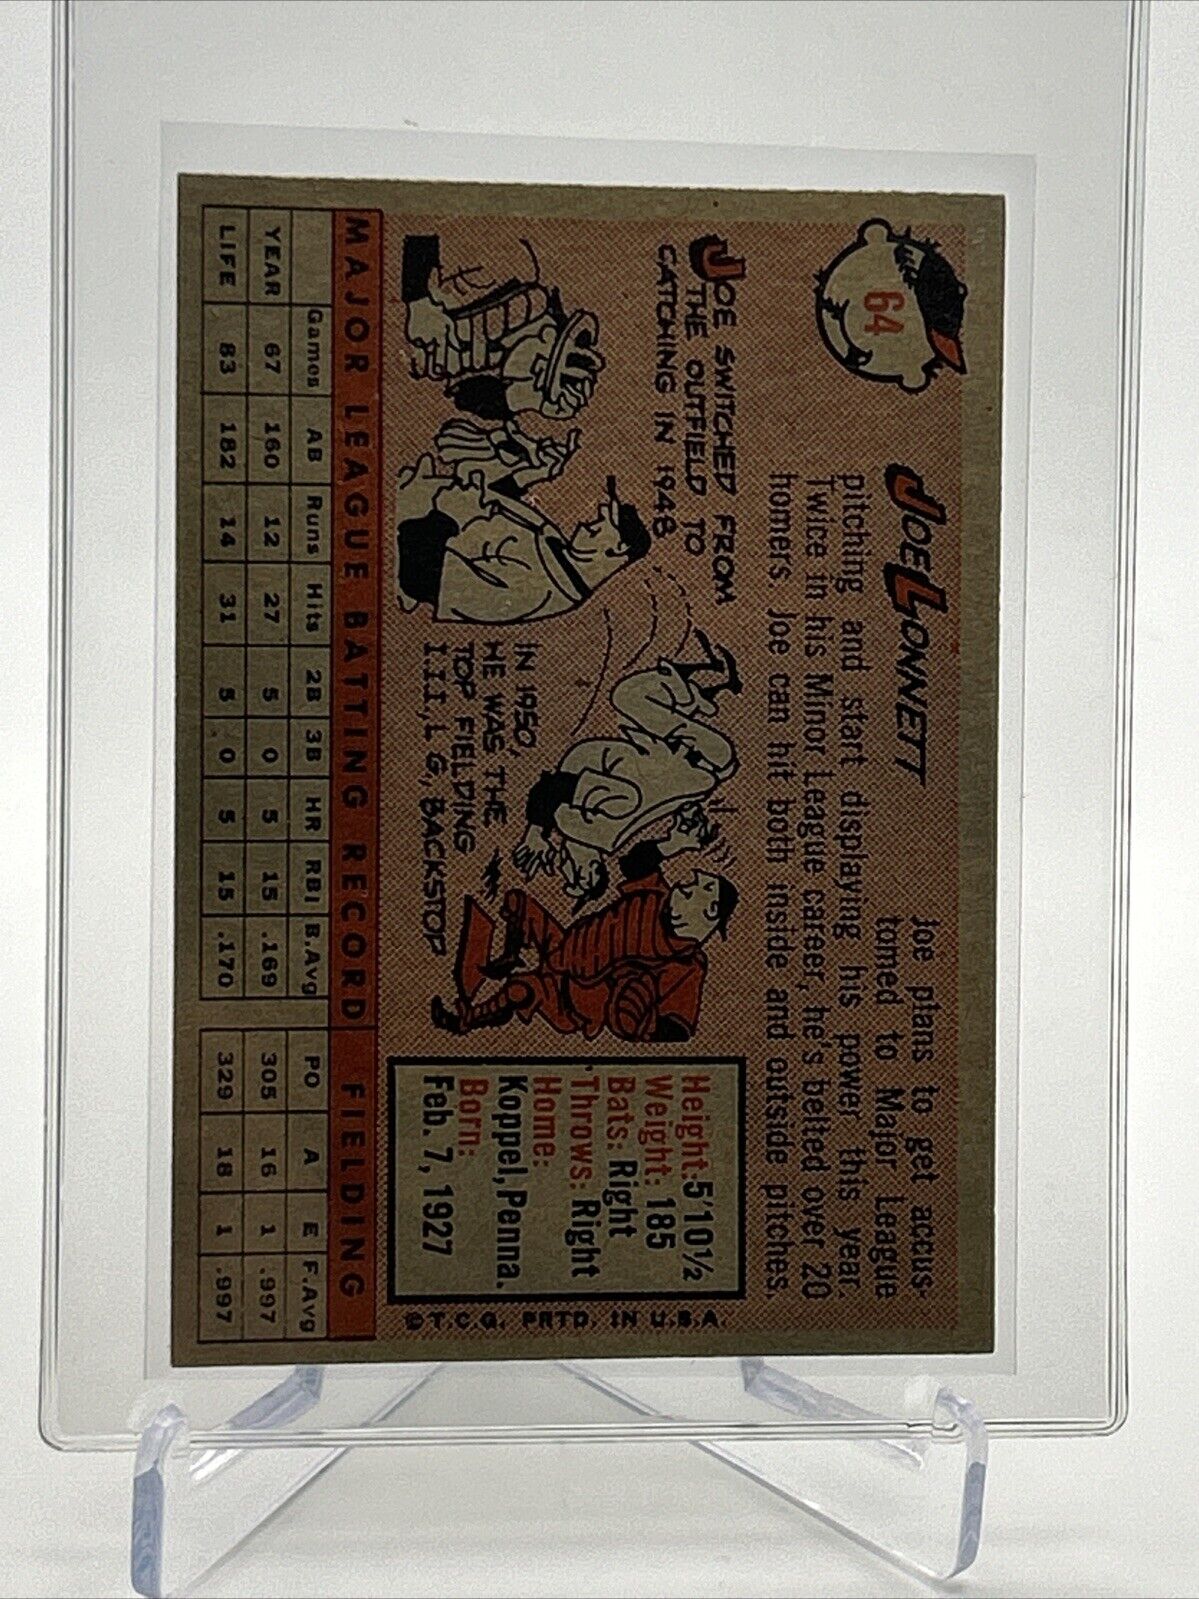 64
JOE LONNETT
Joe plans to get accus-
tomed to Major League
pitching and start displaying his power this year.
Twice in his Minor League career, he's belted over 20
homers. Joe can hit both inside and outside pitches.
JOE SWITCHED FROM
THE OUTFIELD TO
CATCHING IN 1948
IN 1950,
HE WAS THE
TOP FIELDING
I.I.I.L G, BACKSTOP
Height: 5'10½
Weight: 185
Bats: Right
Throws: Right
Home:
Koppel, Penna.
Born:
Feb. 7, 1927
© T.C.G. PRTD. IN U.S.A.
MAJOR LEAGUE BATTING RECORD FIELDING
Games AB Runs Hits 2B 3B HR RBI B.Avg PO A E F.Avg
YEAR 67 160 12 27 5 0 5 15 .169 305 16 1 .997
LIFE 83 182 14 31 5 0 5 15 .170 329 18 1 .997